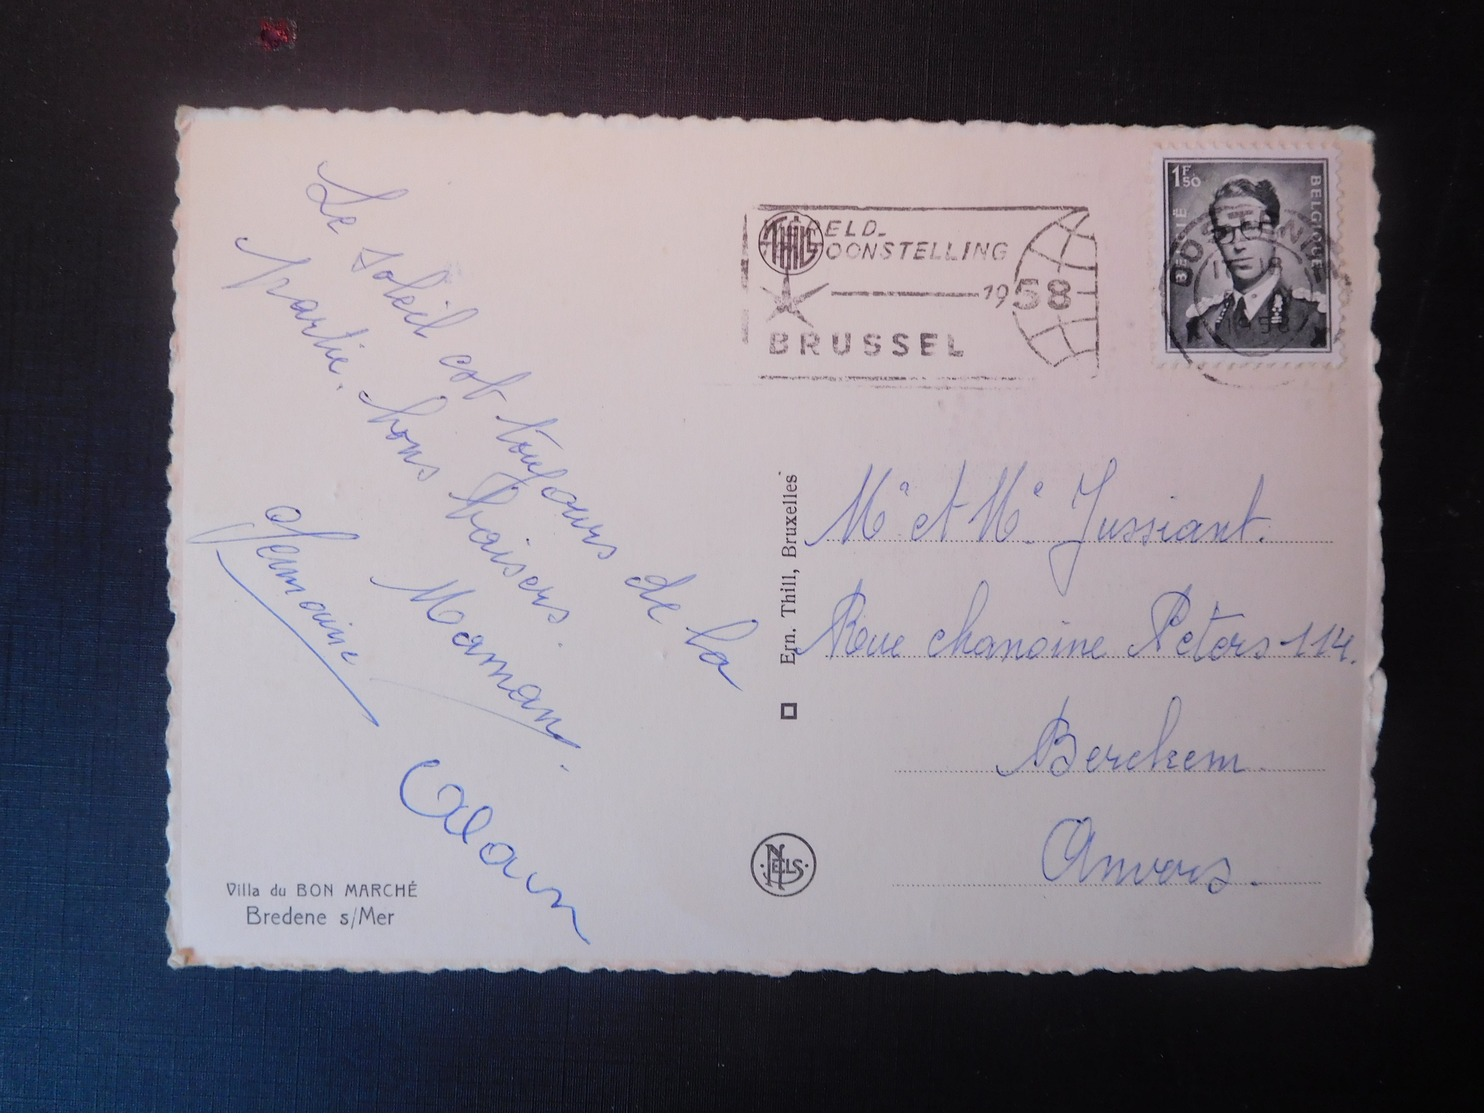 Le soleil est toujours de la
partie. bons baisers.
Maman.
Germaine
Alain
Villa du BON MARCHÉ
Bredene s/Mer
Ern. Thill, Bruxelles
NELS
THILL
ELD-
OONSTELLING
1958
BRUSSEL
1F50
BELGIQUE
BELGIË
1958
Mr et Me Jussiant.
Rue chanoine Peters 114.
Berchem
Anvers.